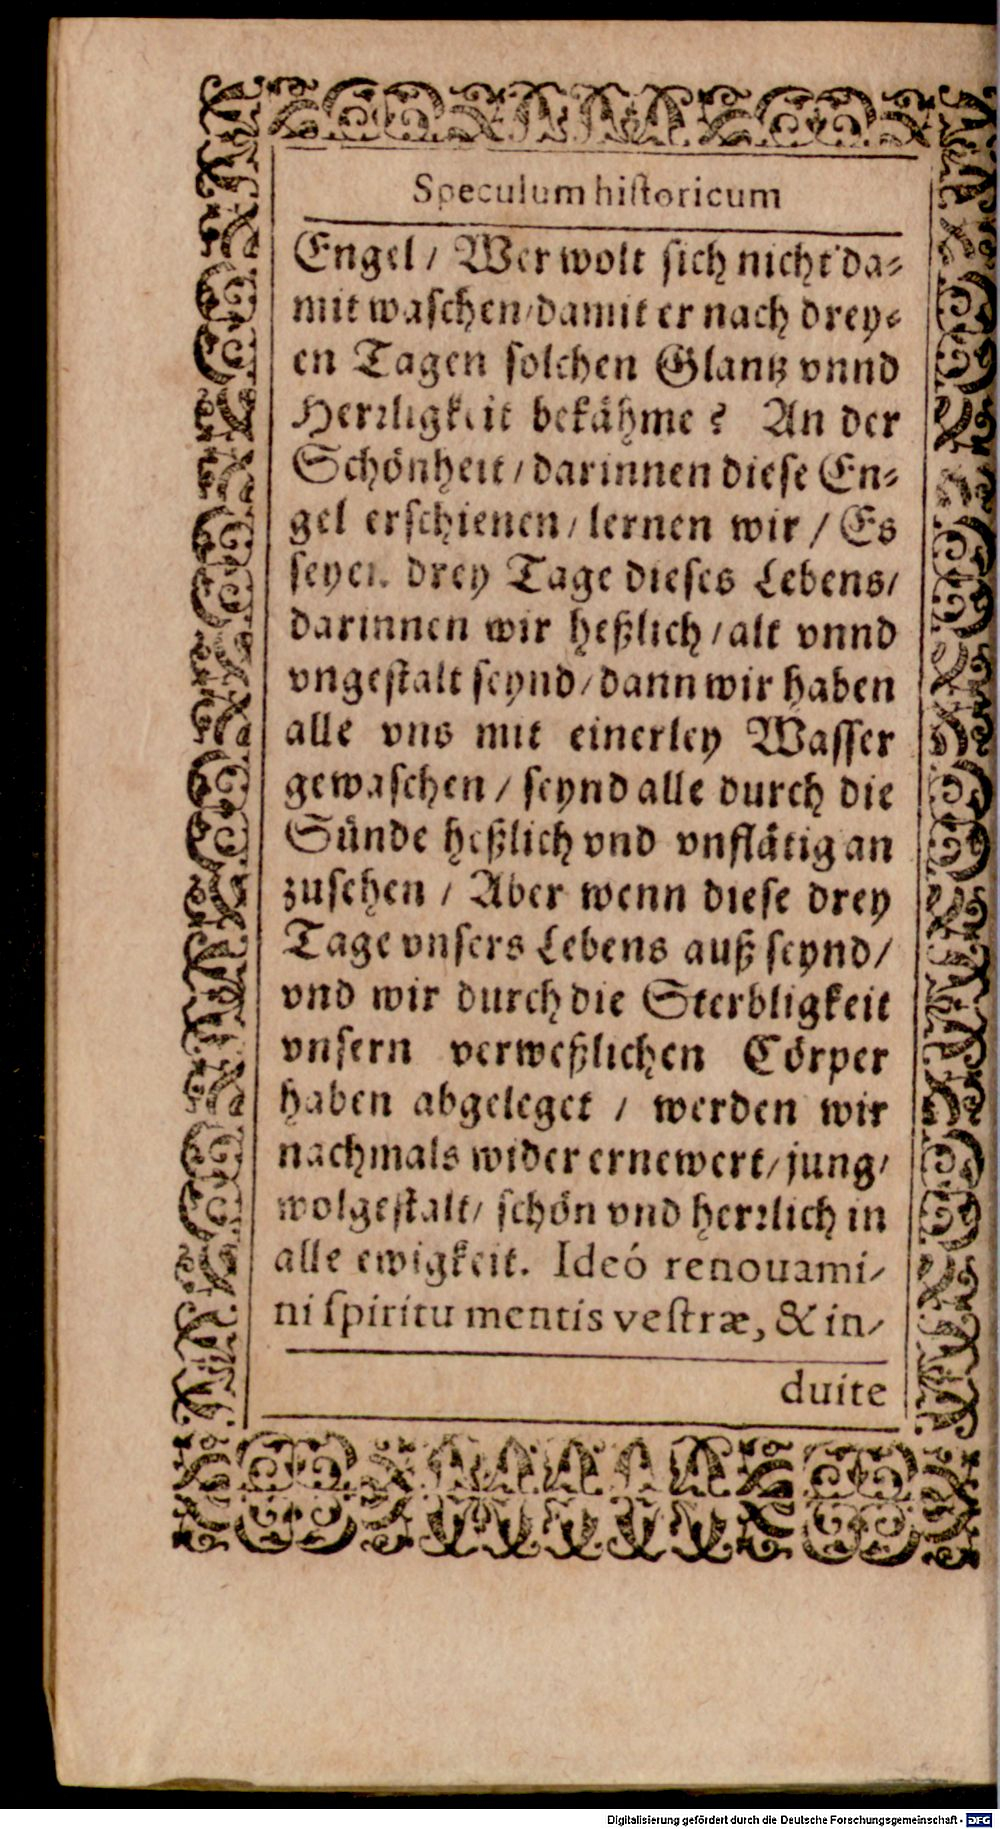 Speculum historicum
Engel / Wer wolt sich nicht da-
mit waschen / damit er nach drey-
en Tagen solchen Glantz vnnd
Herrligkeit bekähme? An der
Schönheit / darinnen diese En-
gel erschienen / lernen wir / Es
seyen drey Tage dieses Lebens /
darinnen wir heßlich / alt vnnd
vngestalt seynd / dann wir haben
alle vns mit einerley Wasser
gewaschen / seynd alle durch die
Sünde heßlich vnd vnflätig an
zusehen / Aber wenn diese drey
Tage vnsers Lebens auß seynd /
vnd wir durch die Sterbligkeit
vnsern verweßlichen Cörper
haben abgeleget / werden wir
nachmals wider ernewert / jung /
wolgestalt / schön vnd herrlich in
alle ewigkeit. Ideó renouami-
ni spiritu mentis vestræ, & in-
duite
Digitalisierung gefördert durch die Deutsche Forschungsgemeinschaft - DFG